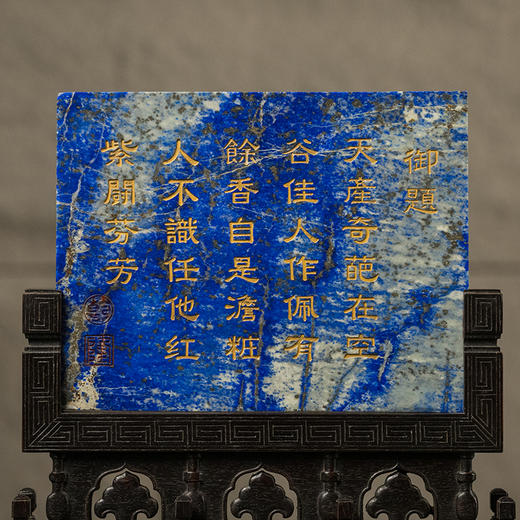 御題
天產奇葩在空
谷佳人作佩有
餘香自是澹粧
人不識任他红
紫鬪芬芳